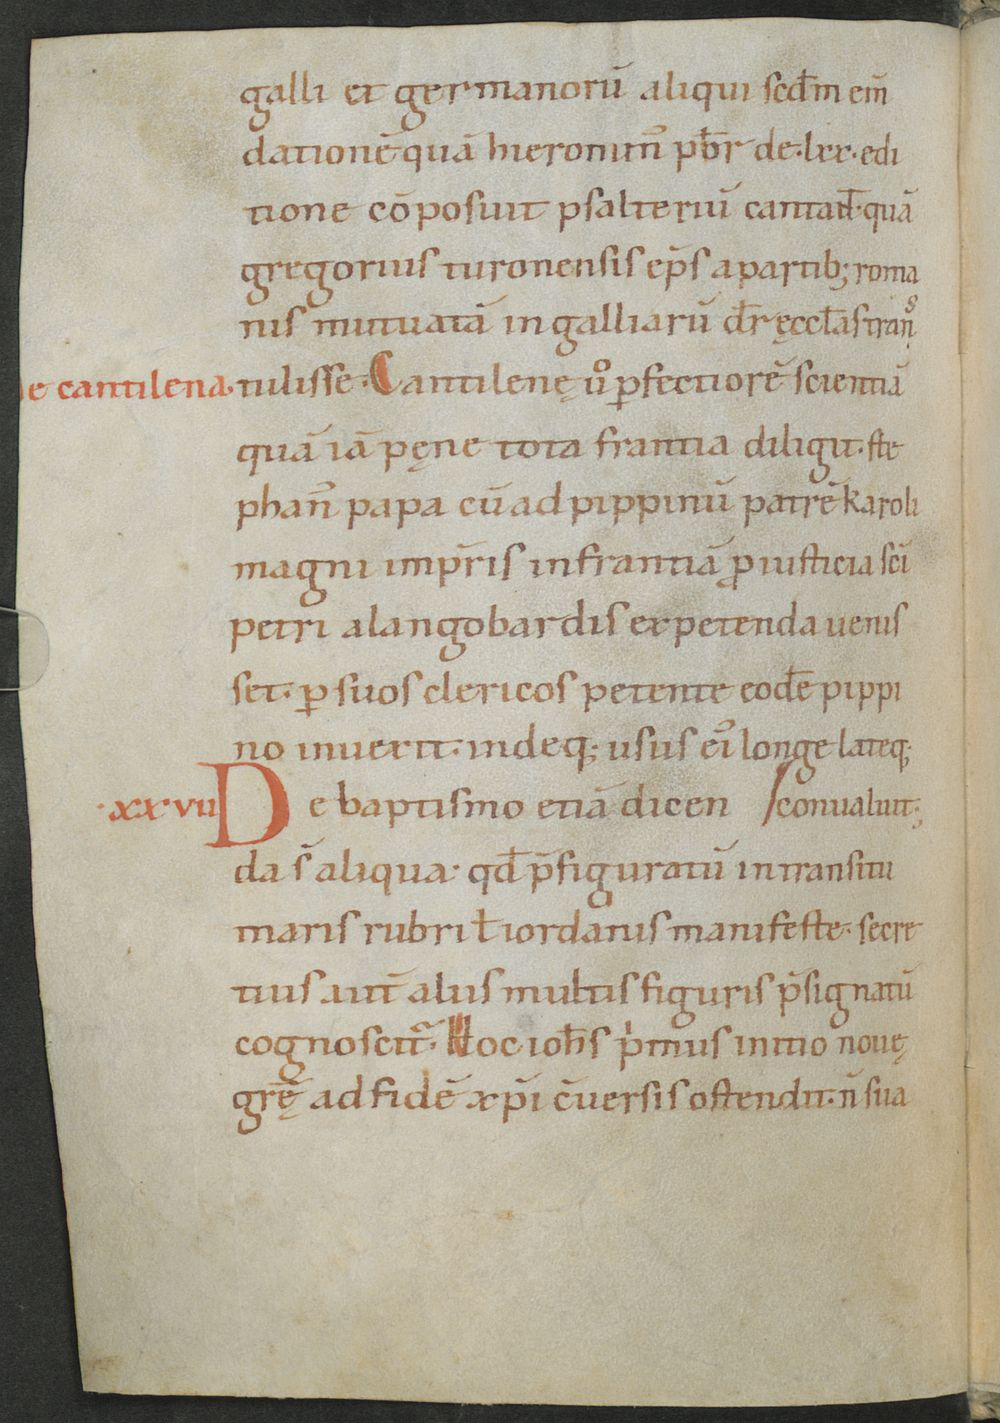 galli et germanorū aliqui scd̄m em̄
dationē quā hieronim᷒ pƀr de·lxx·edi
tione cōposuit psalteriū cantant̄·quā
gregorius turonensis ep̄s a partib; roma
nis mutuatā in galliarū dr̄ ęccl̄as trans
e cantilena· tulisse· Cantilenę ů ꝑfectiorē scientiā
quā iā pęne tota frantia diligit· ste
phan᷒ papa cū ad pippinū patrē karoli
magni imꝑr̄is in frantiā ꝓ iusticia sc̄i
petri a langobardis expetenda uenis
set· ꝑ suos clericos petente eodē pippi
no inuexit· indeq; usus ei᷒ longe lateq;
·xxvii De baptismo etiā dicen / conualuit;
da s̄ aliqua· qd̄ p̄figuratū in transitu
maris rubri ł iordanis manifeste· secre
tius aut̄ aliis multis figuris p̄signatū
cognoscit᷑· Hoc ioh̄s p'mus initio nouę
gr̄ę ad fidē xp̄i c̄uersis ostendit· n̄ sua